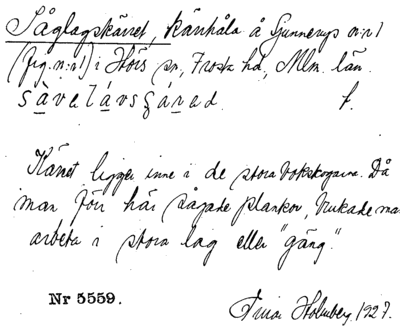 Såglagskärret, kärrhåla å Gunnarps n:r 1
(fig. n:r 1) i Hörs sn, Frosta hd, Mlm. län.
sàvalávsʂá̱rad f.
Kärret ligger inne i de stora bokskogarna. Då
man förr här sågade plankor, brukade man
arbeta i stora lag eller "gäng".
Nr 5559.
Holmberg 1927.